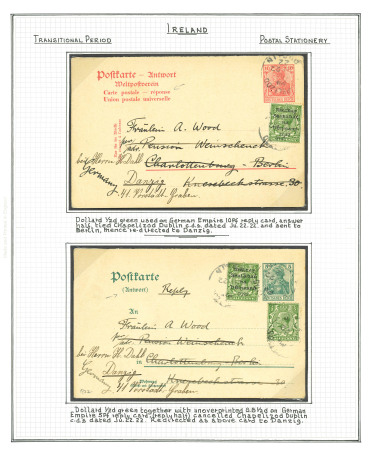 IRELAND
TRANSITIONAL PERIOD
POSTAL STATIONERY
Postkarte – Antwort
Weltpostverein
Carte postale – réponse
Union postale universelle
Fräulein A. Wood
Pension Wemschenck
bei Herrn H. Dahl
Charlottenburg – Berlin
Danzig Knesebeckstrasse 30
Germany
41 Vorstadt. Graben
Dollard ½d green used on German Empire 10Pf reply card, answer
half, tied Chapelizod Dublin c.d.s. dated JU. 22. 22 and sent to
Berlin, hence re-directed to Danzig.
Postkarte
(Antwort) Reply
An
Fräulein A. Wood
Pension Wemschenck
bei Herrn H. Dahl
in Charlottenburg – Berlin
Danzig
Germany Knesebeckstrasse 30
41 Vorstadt. Graben
Dollard ½d green together with unoverprinted G.B ½d on German
Empire 5Pf reply card (reply half) cancelled Chapelizod Dublin
c.d.s. dated JU. 22. 22. Redirected as above card to Danzig.